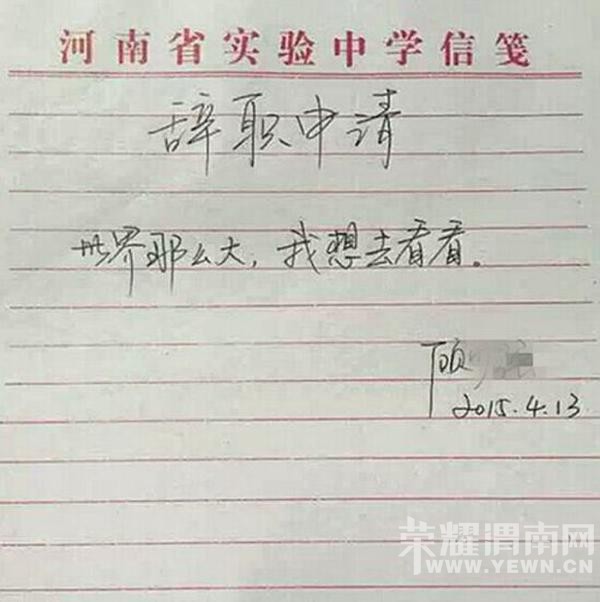 河南省实验中学信笺
辞职申请
世界那么大，我想去看看。
顾
2015.4.13
荣耀渭南网
WWW.YEWN.CN